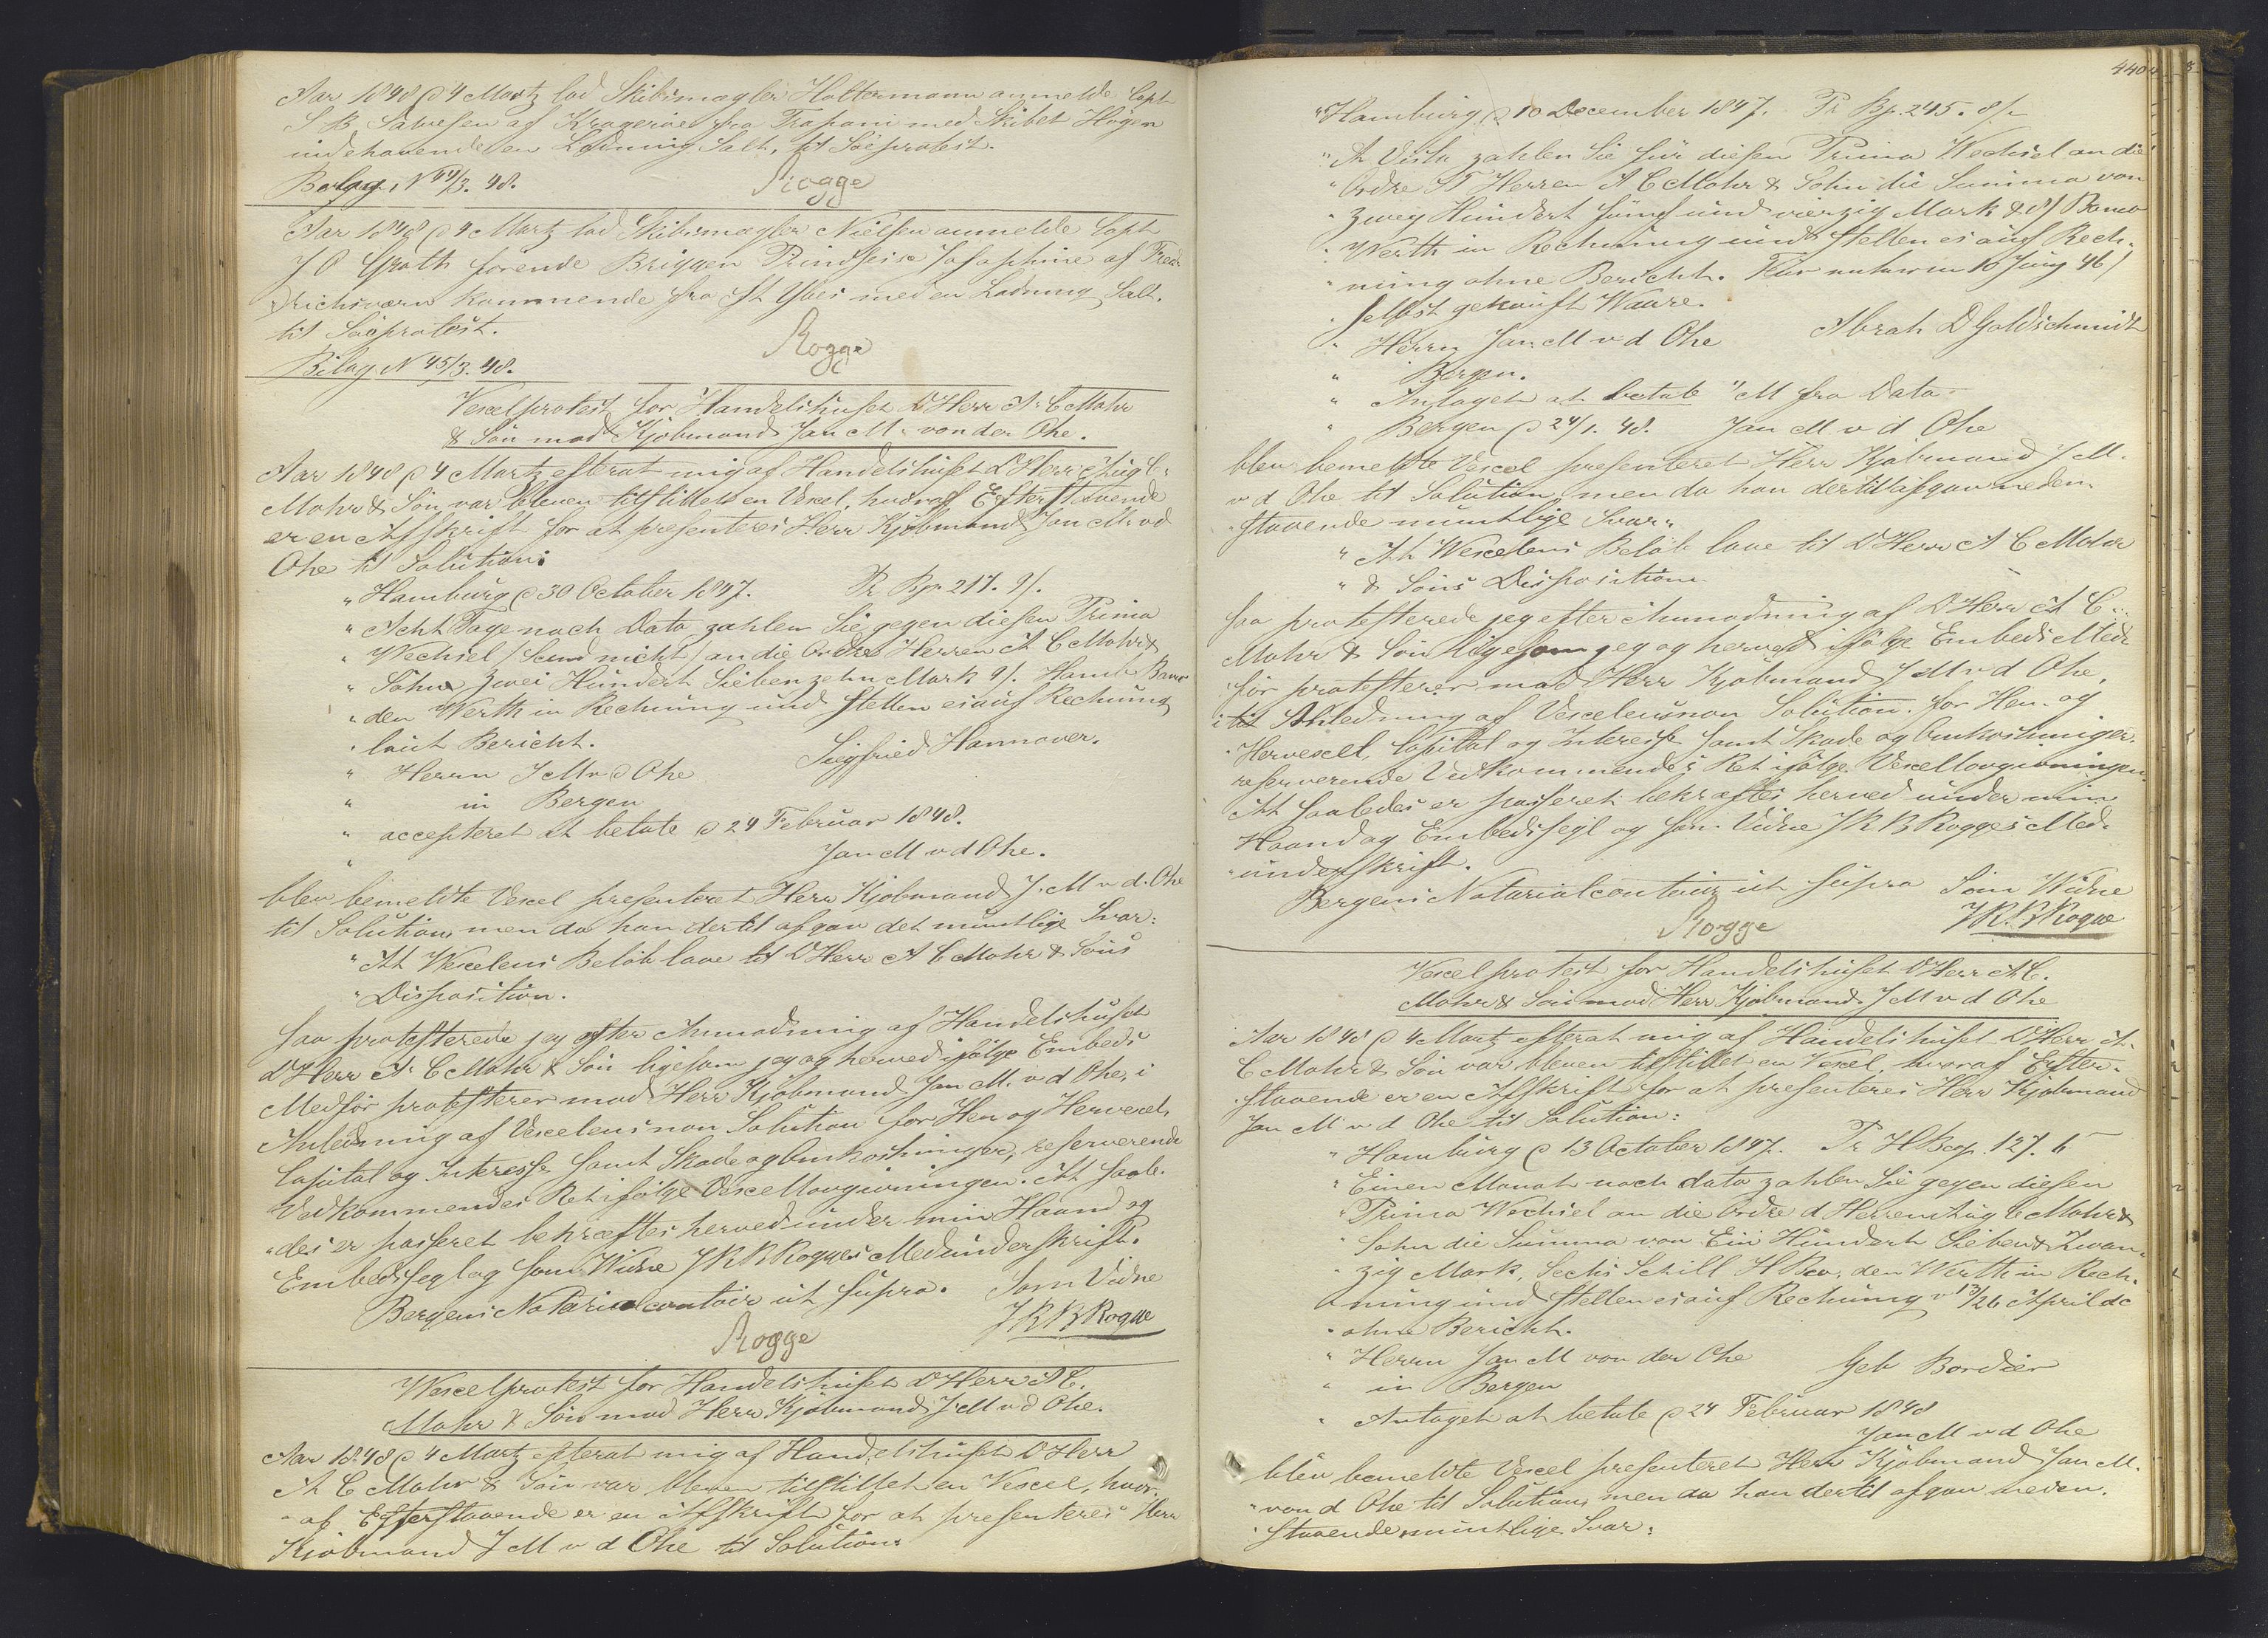 Aar 1848 d 4 Martz lod Skibsmægler Holtermann anmelde Capt
S B Salvesen af Krageröe fra Trapani med Skibet Haagen
indehavende en Ladning Salt, til Söeprotest.
Bilag N 44/3. 48. Rogge
Aar 1848 d 4 Martz lod Skibsmægler Nielsen anmelde Capt
J O Groth förende Briggen Prindsesse Josephine af Fried-
richsværn kommende fra St Ybes med en Ladning Salt.
til Söeprotest.
Bilag N 45/3. 48. Rogge
Vexelprotest for Handelshuset D'Herr A. C Mohr
& Sön mod Kjöbmand Jan M. von der Ohe.
Aar 1848 d 4 Martz efterat mig af Handelshuset D'Herr Aug C.
Mohr & Sön var bleven tilstillet en Vexel, hvoraf Efterstaaende
er en Afskrift for at presenteres Herr Kjöbmand Jan M. v d
Ohe til Solution:
" Hamburg d 30 October 1847. Pr Bco 217. 9/.
" Acht Tage nach Dato zahlen Sie gegen diesen Prima
" Wechsel / Secund nicht / an die Ordre Herren A C Mohr &
" Sohn Zwei Hundert Siebenzehn Mark 9/. Hamb Banco
" den Werth in Rechnung und stellen es auf Rechnung
" laut Bericht. Siegfried Hannover.
" Herrn J M v d Ohe
" in Bergen
" accepteret at betale d 24 Februar 1848.
" Jan M v d Ohe.
blev bemeldte Vexel presenteret Herr Kjöbmand J. M v d. Ohe
til Solution, men da han dertil afgav det mundtlige Svar:
" At Wexelens Belöb laae til D'Herr A C Mohr & Söns
" Disposition.
saa protesterede jeg efter Anmodning af Handelshuset
D'Herr A. C Mohr & Sön ligesom jeg og herved ifölge Embeds
Medför protesterer mod Herr Kjöbmand Jan M. v d Ohe, i
Anledning af Vexelens non Solution for Hen og Hervexel,
Capital og Interesse samt Skade og Omkostninger, reserverende
Vedkommendes Ret ifölge Vexellovgivningen. At saale-
"des er passeret bekræftes herved under min Haand og
Embedssegl og som Vidne J R B Rogges Medunderskrift.
Bergens Notarialcontoir ut supra. Som Vidne
Rogge J R B Rogge
Wexelprotest for Handelshuset D'Herr A C.
Mohr & Sön mod Herr Kjöbmand J M v d Ohe.
Aar 1848 d 4 Martz efterat mig af Handelshuset D'Herr
A C Mohr & Sön var bleven tilstillet en Vexel, hvor-
"af Efterstaaende er en Afskrift for at presenteres Herr
Kjöbmand J M v d Ohe til Solution:
440
" Hamburg d 10 December 1847. Pr Bco. 245. 8/-
" A Vista zahlen Sie für diesen Prima Wechsel an die
" Ordre Herren A C Mohr & Sohn die Summa von
" Zwey Hundert fünf und vierzig Mark & 8/ Banco
" Werth in Rechnung und stellen es auf Rech-
" nung ohne Bericht. 10 Juny 46/
" selbst gekauft Waare.
" Herrn Jan M v d Ohe Abrah D Goldschmidt
" Bergen.
" Antaget at betale M fra Dato
" Bergen d 24/1. 48. Jan M v d Ohe
blev bemeldte Vexel presenteret Herr Kjöbmand J M.
v d Ohe til Solution, men da han dertil afgav neden-
"staaende mundtlige Svar:
" At Wexelens Belöb laae til D'Herr A C Mohr
" & Söns Disposition
saa protesterede jeg efter Anmodning af D'Herr A C.
Mohr & Sön ligesom jeg og herved ifölge Embeds Med-
för protesterer mod Herr Kjöbmand J M v d Ohe,
i Anledning af Vexelens non Solution. for Hen- og
Hervexel, Capital og Interesse samt Skade og Omkostninger.
reserverende Vedkommendes Ret ifölge Vexellovgivningen.
At saaledes er passeret bekræftes herved under min
Haand og Embedssegl og som Vidne J R B Rogges Med-
"underskrift.
Bergens Notarialcontoir ut supra Som Widne
Rogge J R. B Rogge
Vexelprotest for Handelshuset D'Herr A C.
Mohr & Sön mod Herr Kjöbmand J M v d Ohe
Aar 1848 d 4 Martz efterat mig af Handelshuset D'Herr A.
C Mohr & Sön var bleven tilstillet en Vexel, hvoraf Efter-
"staaende er en Afskrift for at presenteres Herr Kjöbmand
Jan M v d Ohe til Solution:
" Hamburg d 13 October 1847. Pr HBco. 127. 6
" Einen Monat nach dato zahlen Sie gegen diesen
" Prima Wechsel an die Ordre d Herren Aug C Mohr &
" Sohn die Summa von Ein Hundert Sieben & Zwan-
" zig Mark, Sechs Schill H Bco. den Werth in Rech-
nung und stellen es auf Rechnung v 13/26 April dc
" ohne Bericht.
" Herrn Jan M von der Ohe Geb Bordier
" in Bergen
" Antaget at betale d 24 Februar 1848
Jan M v d Ohe
blev bemeldte Vexel presenteret Herr Kjöbmand Jan M.
" von d Ohe til Solution, men da han dertil afgav neden-
" staaende mundtlige Svar: